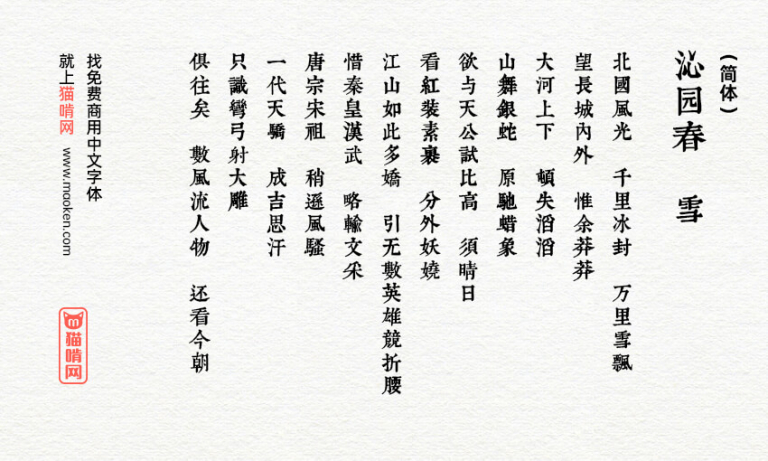 (简体)
沁园春 雪
北國風光 千里冰封 万里雪飄
望長城內外 惟余莽莽
大河上下 頓失滔滔
山舞銀蛇 原馳蜡象
欲与天公試比高 須晴日
看紅装素裹 分外妖嬈
江山如此多嬌 引无數英雄競折腰
惜秦皇漢武 略輸文采
唐宗宋祖 稍遜風騷
一代天驕 成吉思汗
只識彎弓射大雕
俱往矣 數風流人物 还看今朝
找免费商用中文字体
就上猫啃网 www.mooken.com
猫啃网